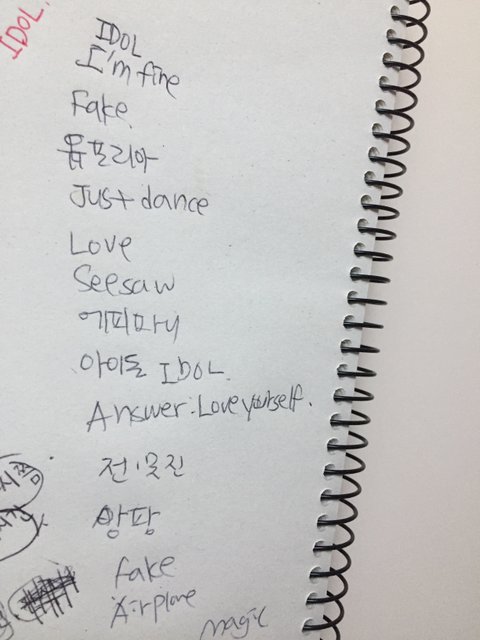 IDOL.
IDOL
I'm fine
Fake
윺포리아
Just dance
Love
Seesaw
에피파니
아이돌 IDOL.
Answer:Love yourself.
앙팡
fake
Airplane
magic